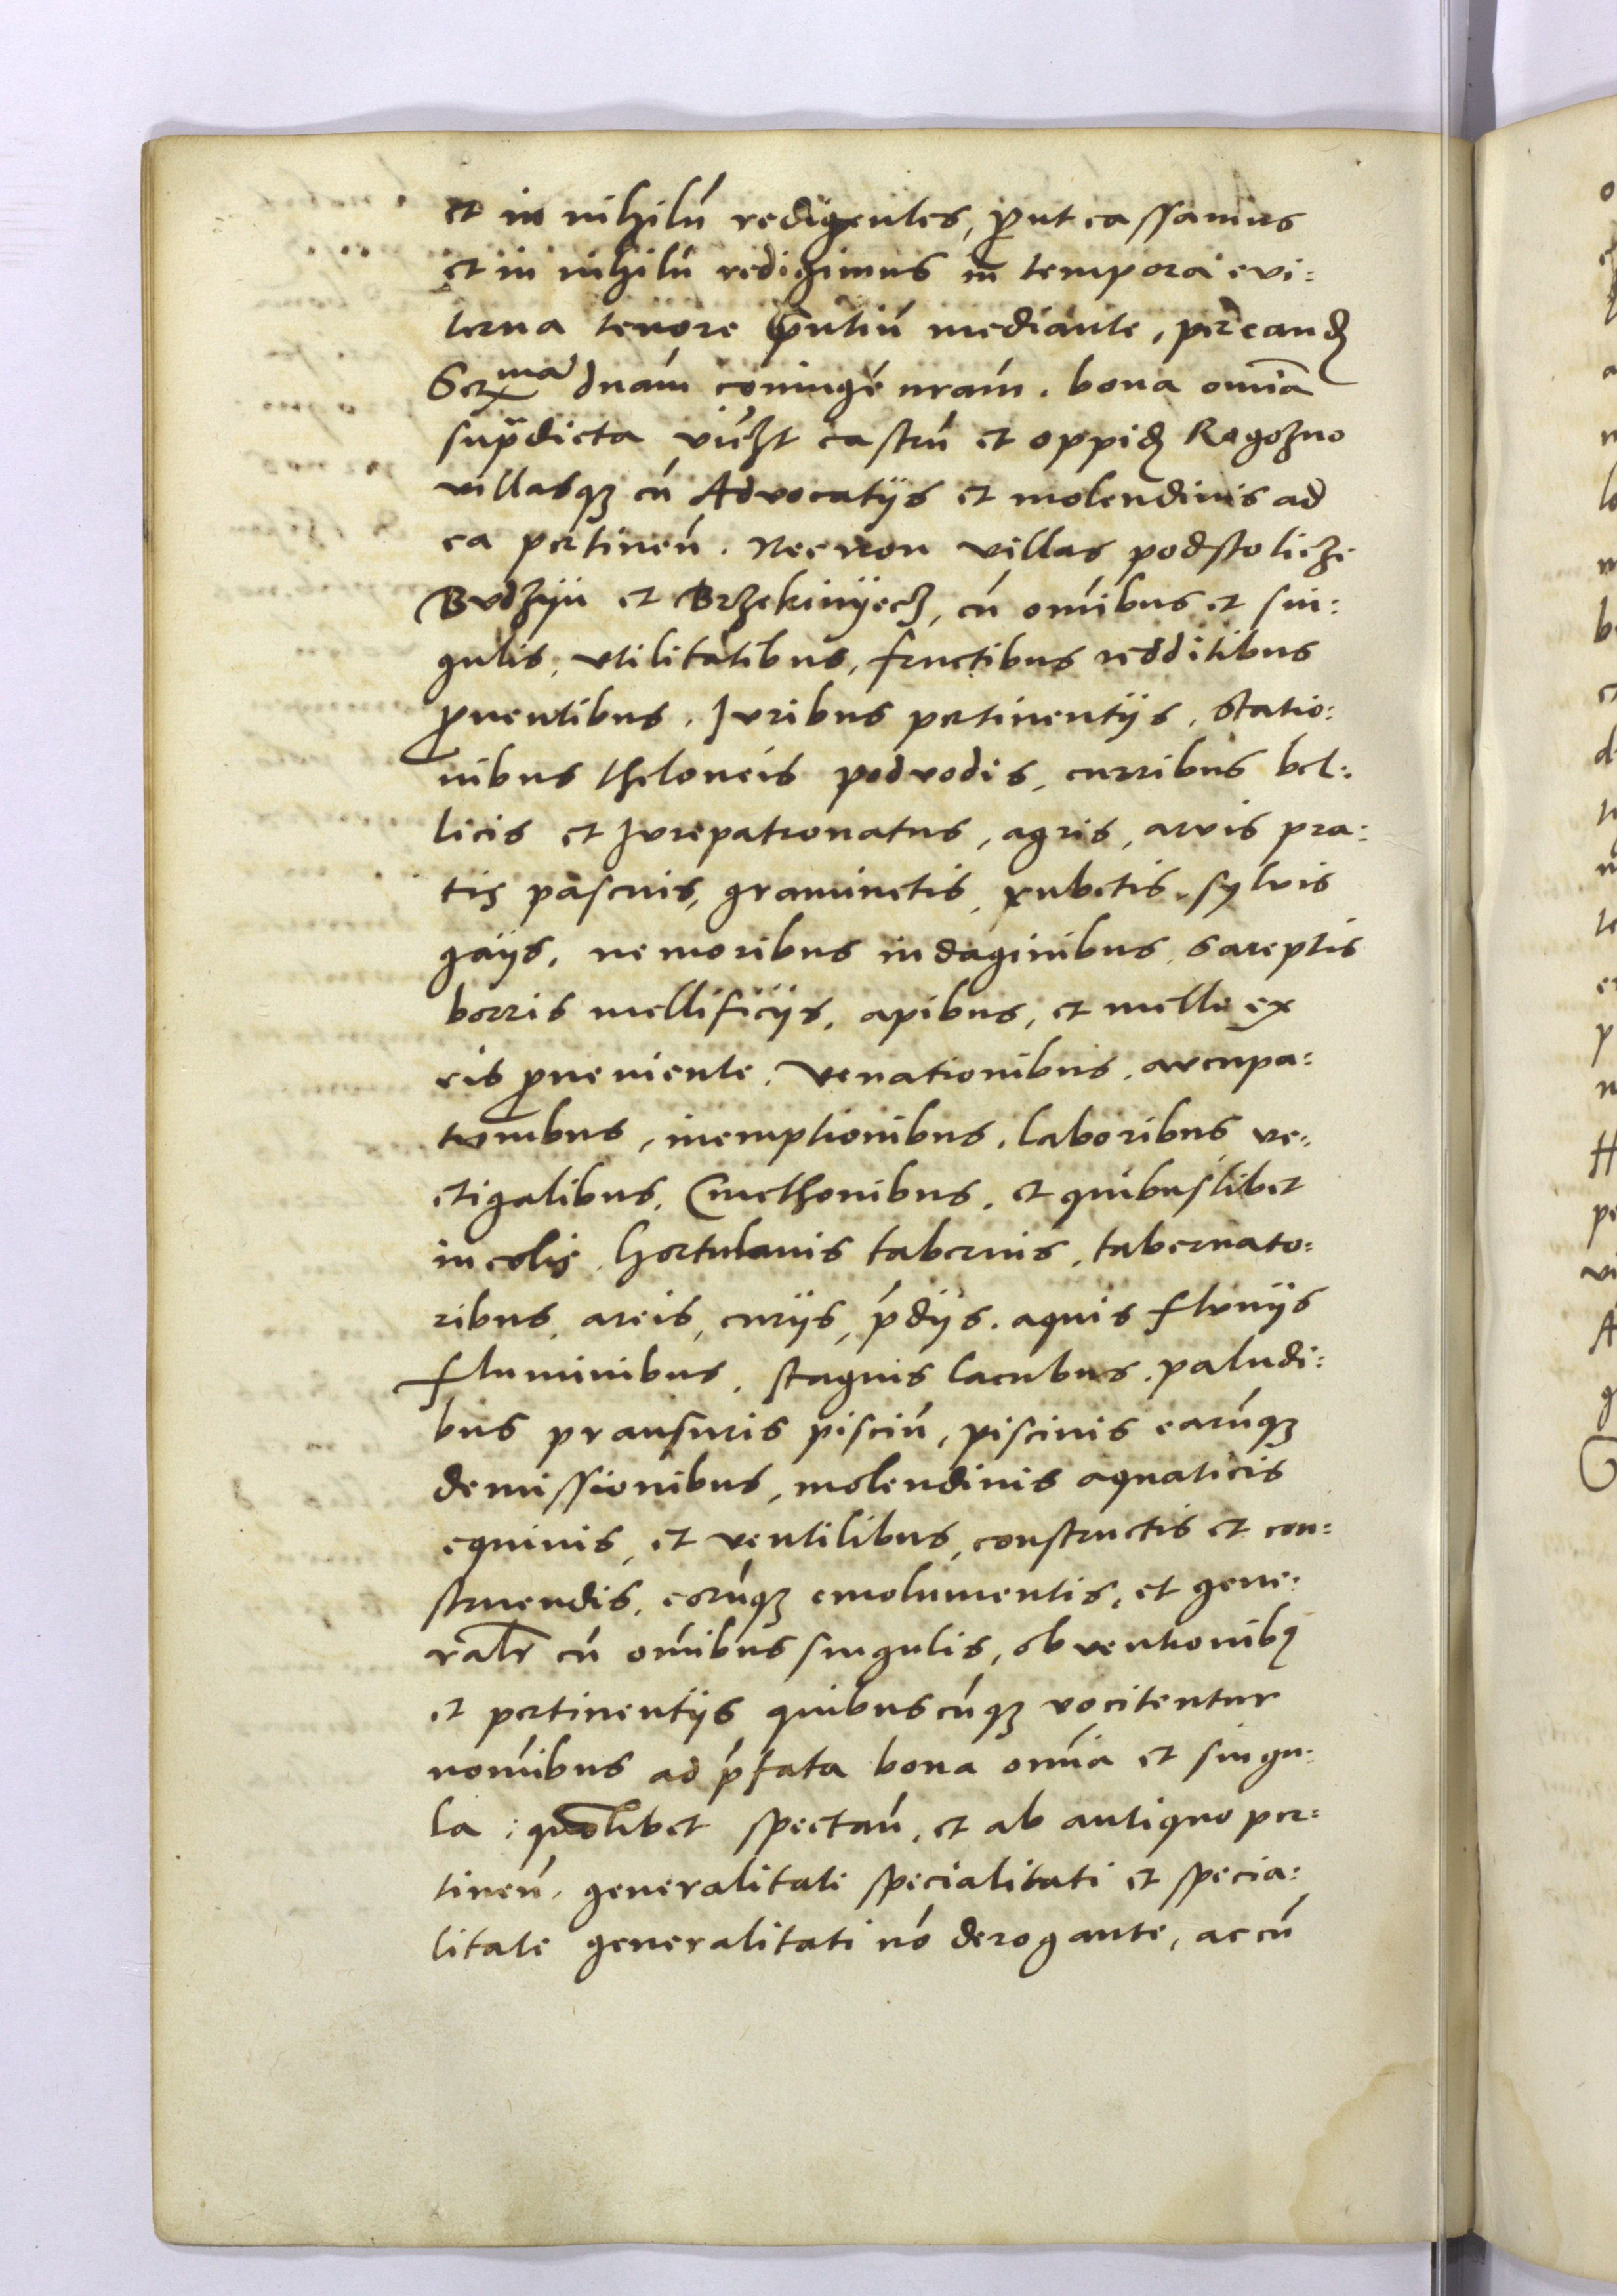 et in nihilū redigentes, ꝓut cassamus
et in nihilū redigimus in tempora evi:
terna tenore p̄ntiū mediante, per eand̨
Serma dnām coniugē nrām. bona omīa
sup̄dicta vic̄zt castrū et oppid̨ Rogozno
villasqȝ cū Advocatijs et molendinis ad
ea pertineñ. Necnon villas podstolicze
Budzÿn et Brzekinÿecz, cū omībus et sin:
gulis, vtilitatibus, fructibus redditibus
ꝓuentibus. Juribus pertinentijs, statio:
nibus theloneis podvodis, curribus bel:
licis et Jurepatronatus, agris, arvis pra:
tis pascuis, graminetis, rubetis, sylvis
gaijs, nemoribus indaginibus, sareptis
borris mellificijs, apibus, et melle ex
eis ꝓueniente. venationibus. aucupa:
tionibus, inemptionibus. laboribus, ve:
ctigalibus, Cmethonibus, et quibuslibet
incolis, hortulanis tabernis, tabernato:
ribus, areis, curijs, p̄dijs. aquis fluuijs
fluminibus, stagnis lacubus, paludi:
bus pransuris pisciū, piscinis earūqȝ
demissionibus, molendinis aquaticis
equinis, et ventilibus, constructis et con:
struendis, eorūqȝ emolumentis, et gene:
ralr̄ cū omībus singulis, obventionibꝰ
et pertinentijs quibuscūqȝ vocitentur
nomībus ad p̄fata bona omīa et singu:
la: quolibet spectañ, et ab antiquo per:
tineñ, generalitate specialitati et specia:
litate generalitati nō derogante, ac cū